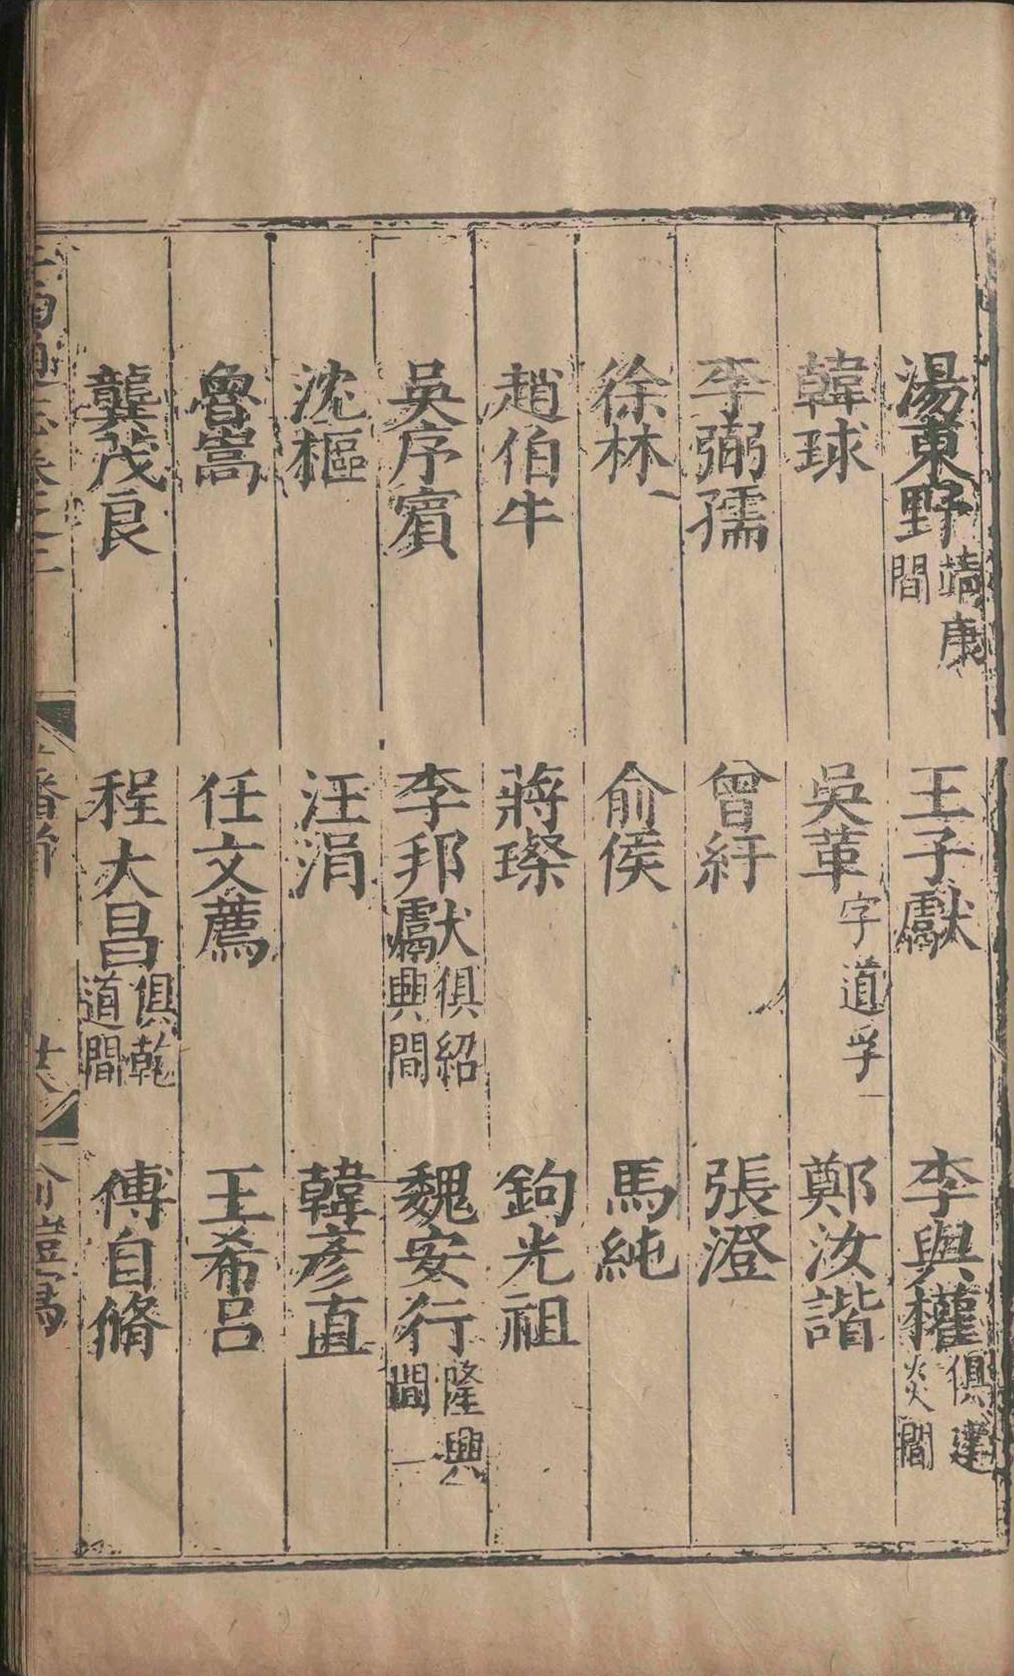 湯東野靖康間　王子獻　李與權俱建炎間
韓球　吳革字道孚　鄭汝諧
李弼孺　曾紆　張澄
徐林　俞俟　馬純
趙伯牛　蔣璨　鉤光祖
吳序賓　李邦獻俱紹興間　魏安行隆興間
沈樞　汪涓　韓彥直
魯嵩　任文薦　王希呂
龔茂良　程大昌俱乾道間　傅自脩